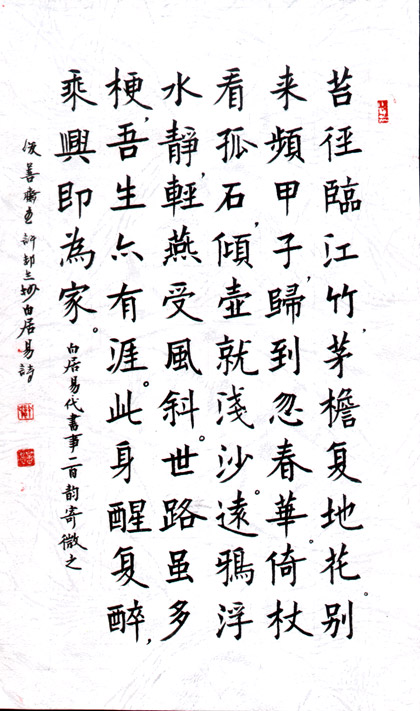 苔径臨江竹，茅檐复地花。别
来頻甲子，歸到忽春華。倚杖
看孤石，傾壺就淺沙。遠鴉浮
水靜，輕燕受風斜。世路虽多
梗，吾生亦有涯。此身醒复醉，
乘興即為家。
白居易代書事二百韵寄微之
善齋主白居易詩